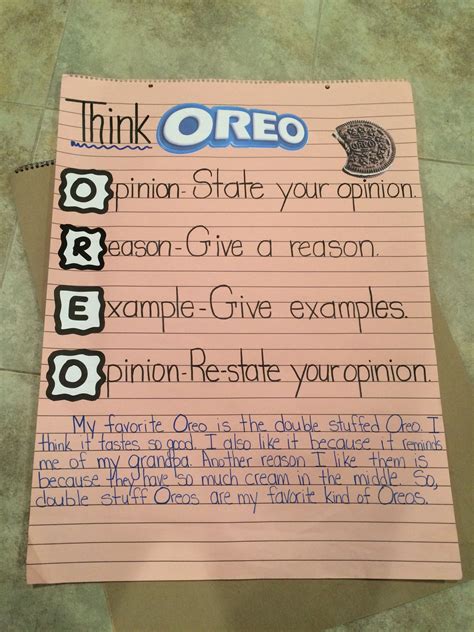 Think OREO
Opinion-State your opinion.
Reason-Give a reason.
Example-Give examples.
Opinion-Re-state your opinion.
My favorite Oreo is the double stuffed Oreo. I
think it tastes so good. I also like it because it reminds
me of my grandpa. Another reason I like them is
because they have so much cream in the middle. So,
double stuff Oreos are my favorite kind of Oreos.